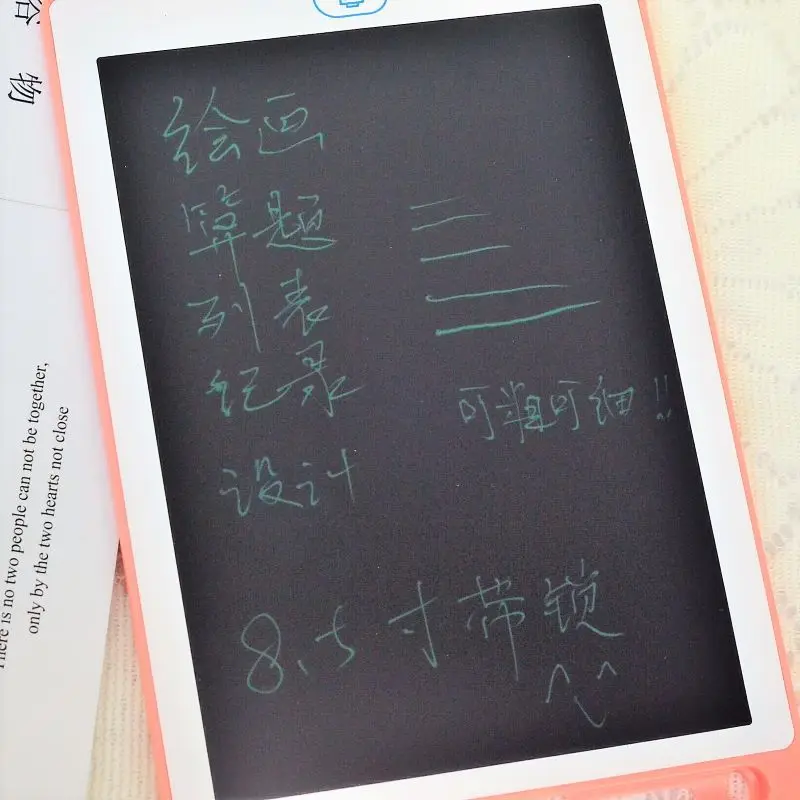 绘画
算题
列表
纪录
设计
可粗可细!!
8.5寸带锁
物
There is no two people can not be together,
only by the two hearts not close